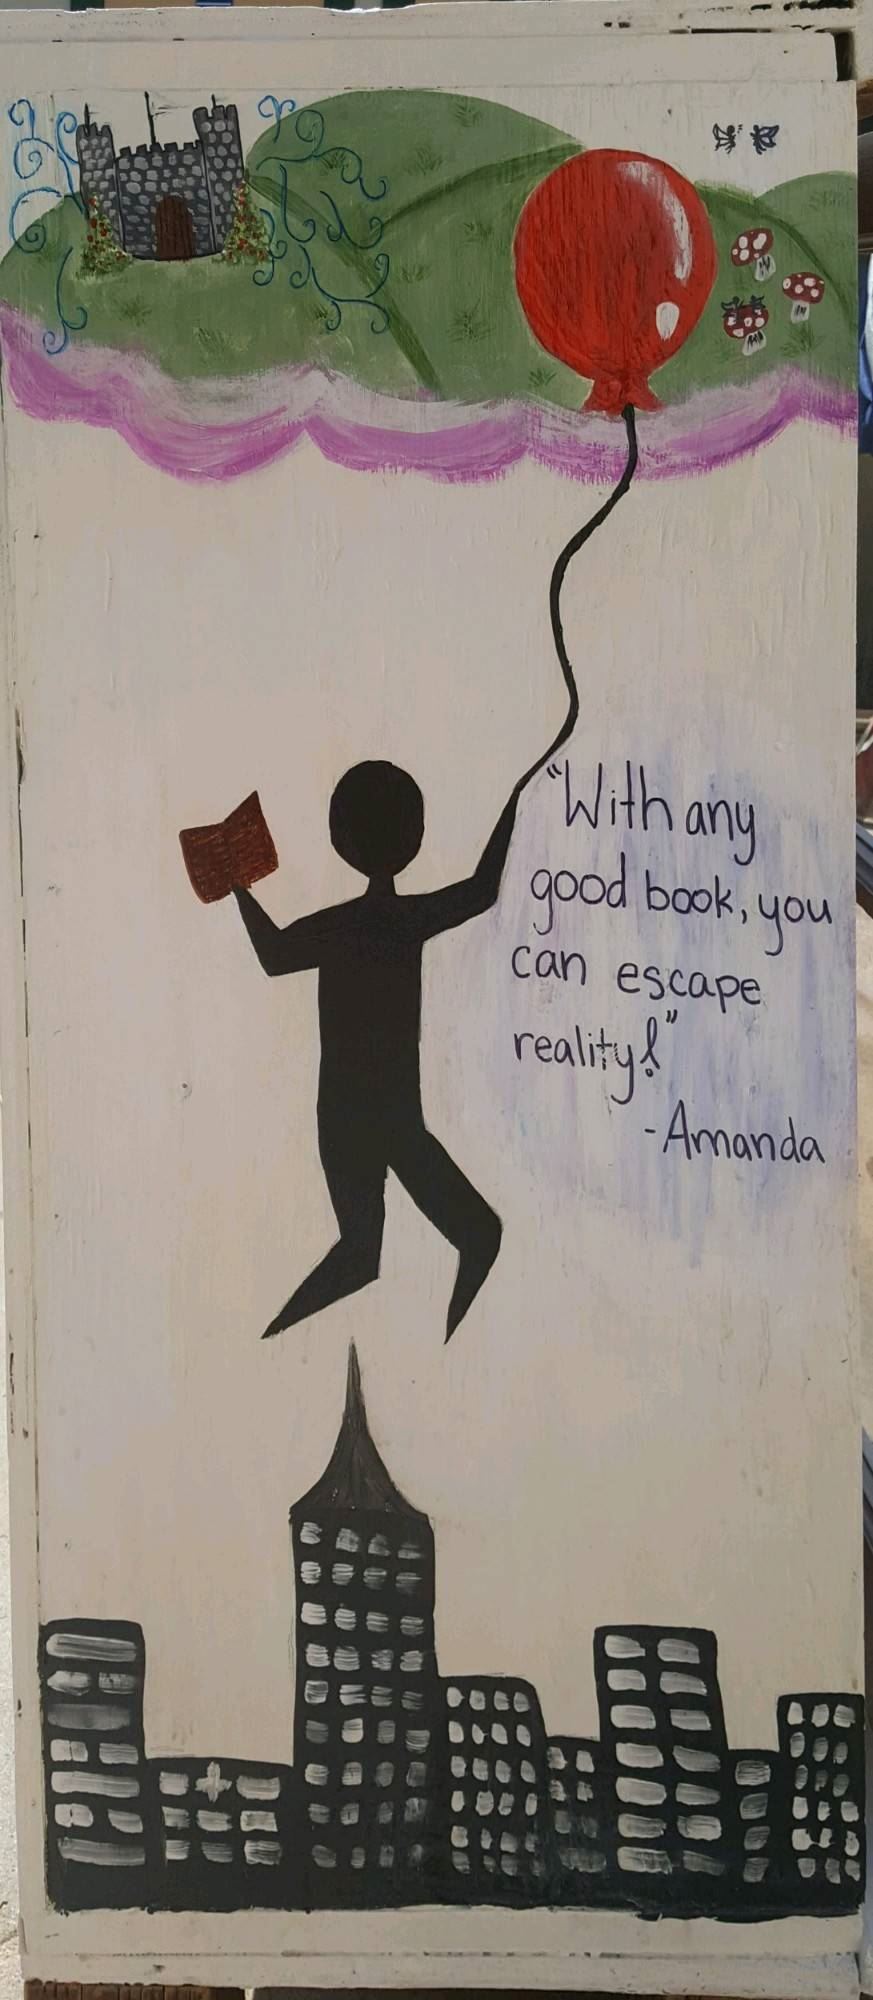 "With any
good book, you
can escape
reality!"
-Amanda